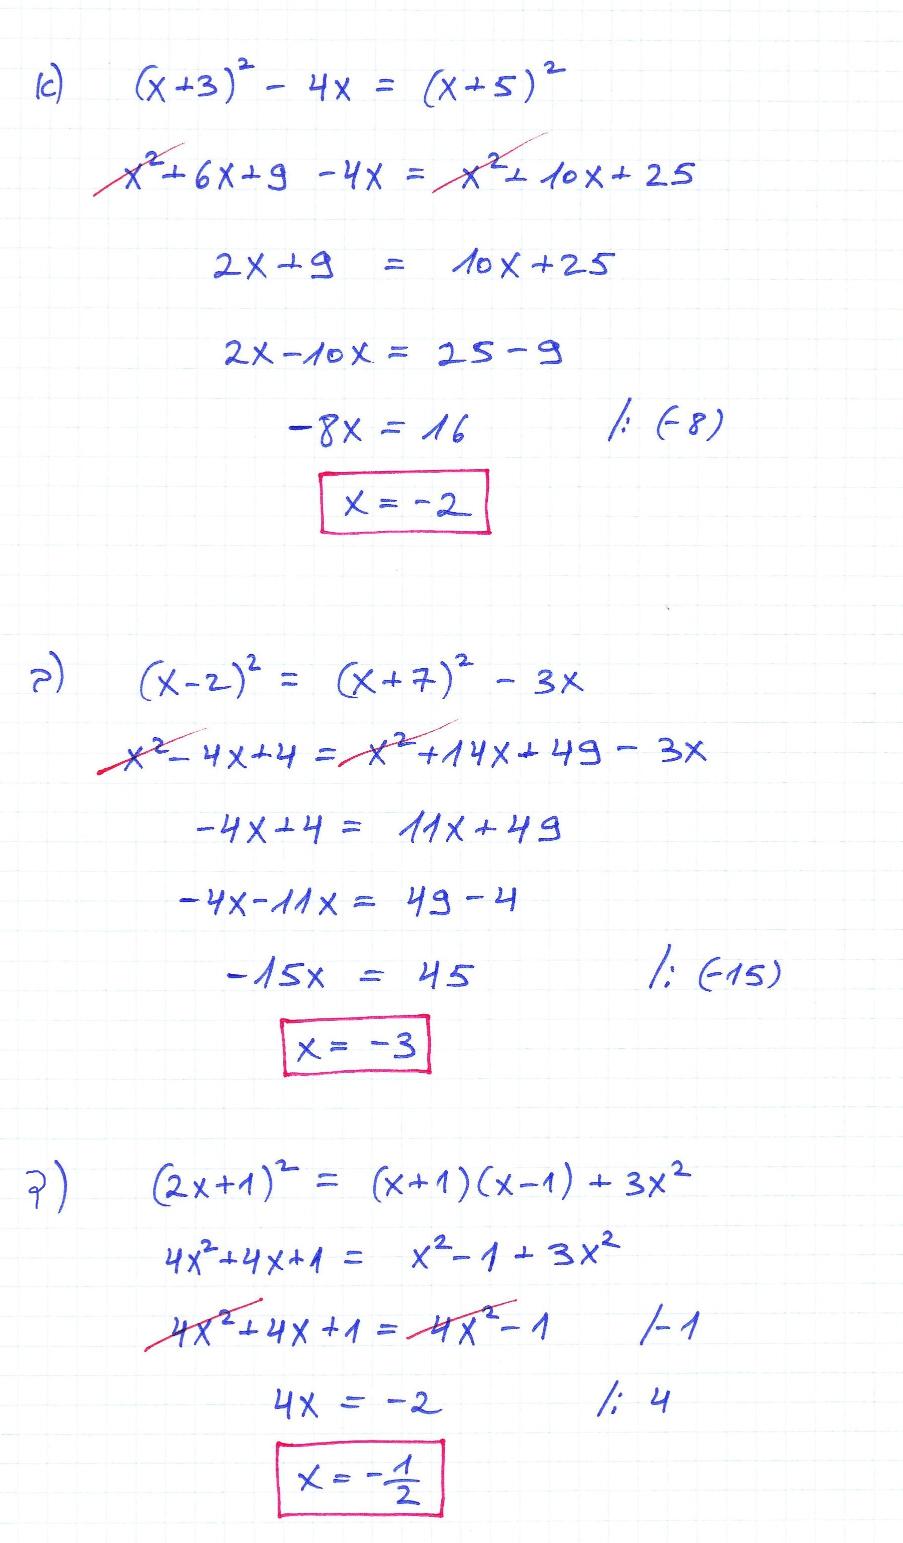 א) (x+3)² - 4x = (x+5)²
x²+6x+9 -4x = x²+10x+25
2x+9 = 10x+25
2x-10x = 25-9
-8x = 16 /: (-8)
x = -2
ב) (x-2)² = (x+7)² - 3x
x²-4x+4 = x²+14x+49-3x
-4x+4 = 11x+49
-4x-11x = 49-4
-15x = 45 /: (-15)
x = -3
ג) (2x+1)² = (x+1)(x-1)+3x²
4x²+4x+1 = x²-1+3x²
4x²+4x+1 = 4x²-1 /-1
4x = -2 /: 4
x = -1/2